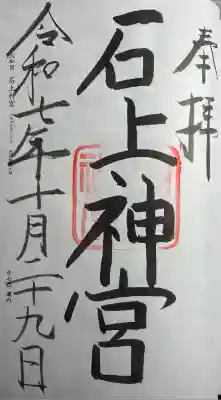 奉拝
石上神宮
令和七年十月二十九日
石上神宮